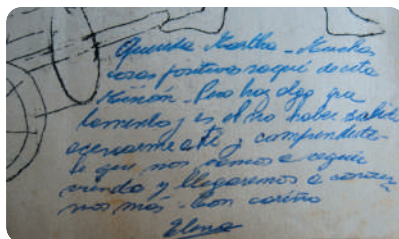 Querida Martha - Muchas
cosas positivas saqué de esta
Reunión - Pero hay algo que
lamento y es el no haber sabido
acercarme a ti y comprenderte -
Sé que nos vamos a seguir
viendo y llegaremos a conocer
nos más - Con cariño
Elena